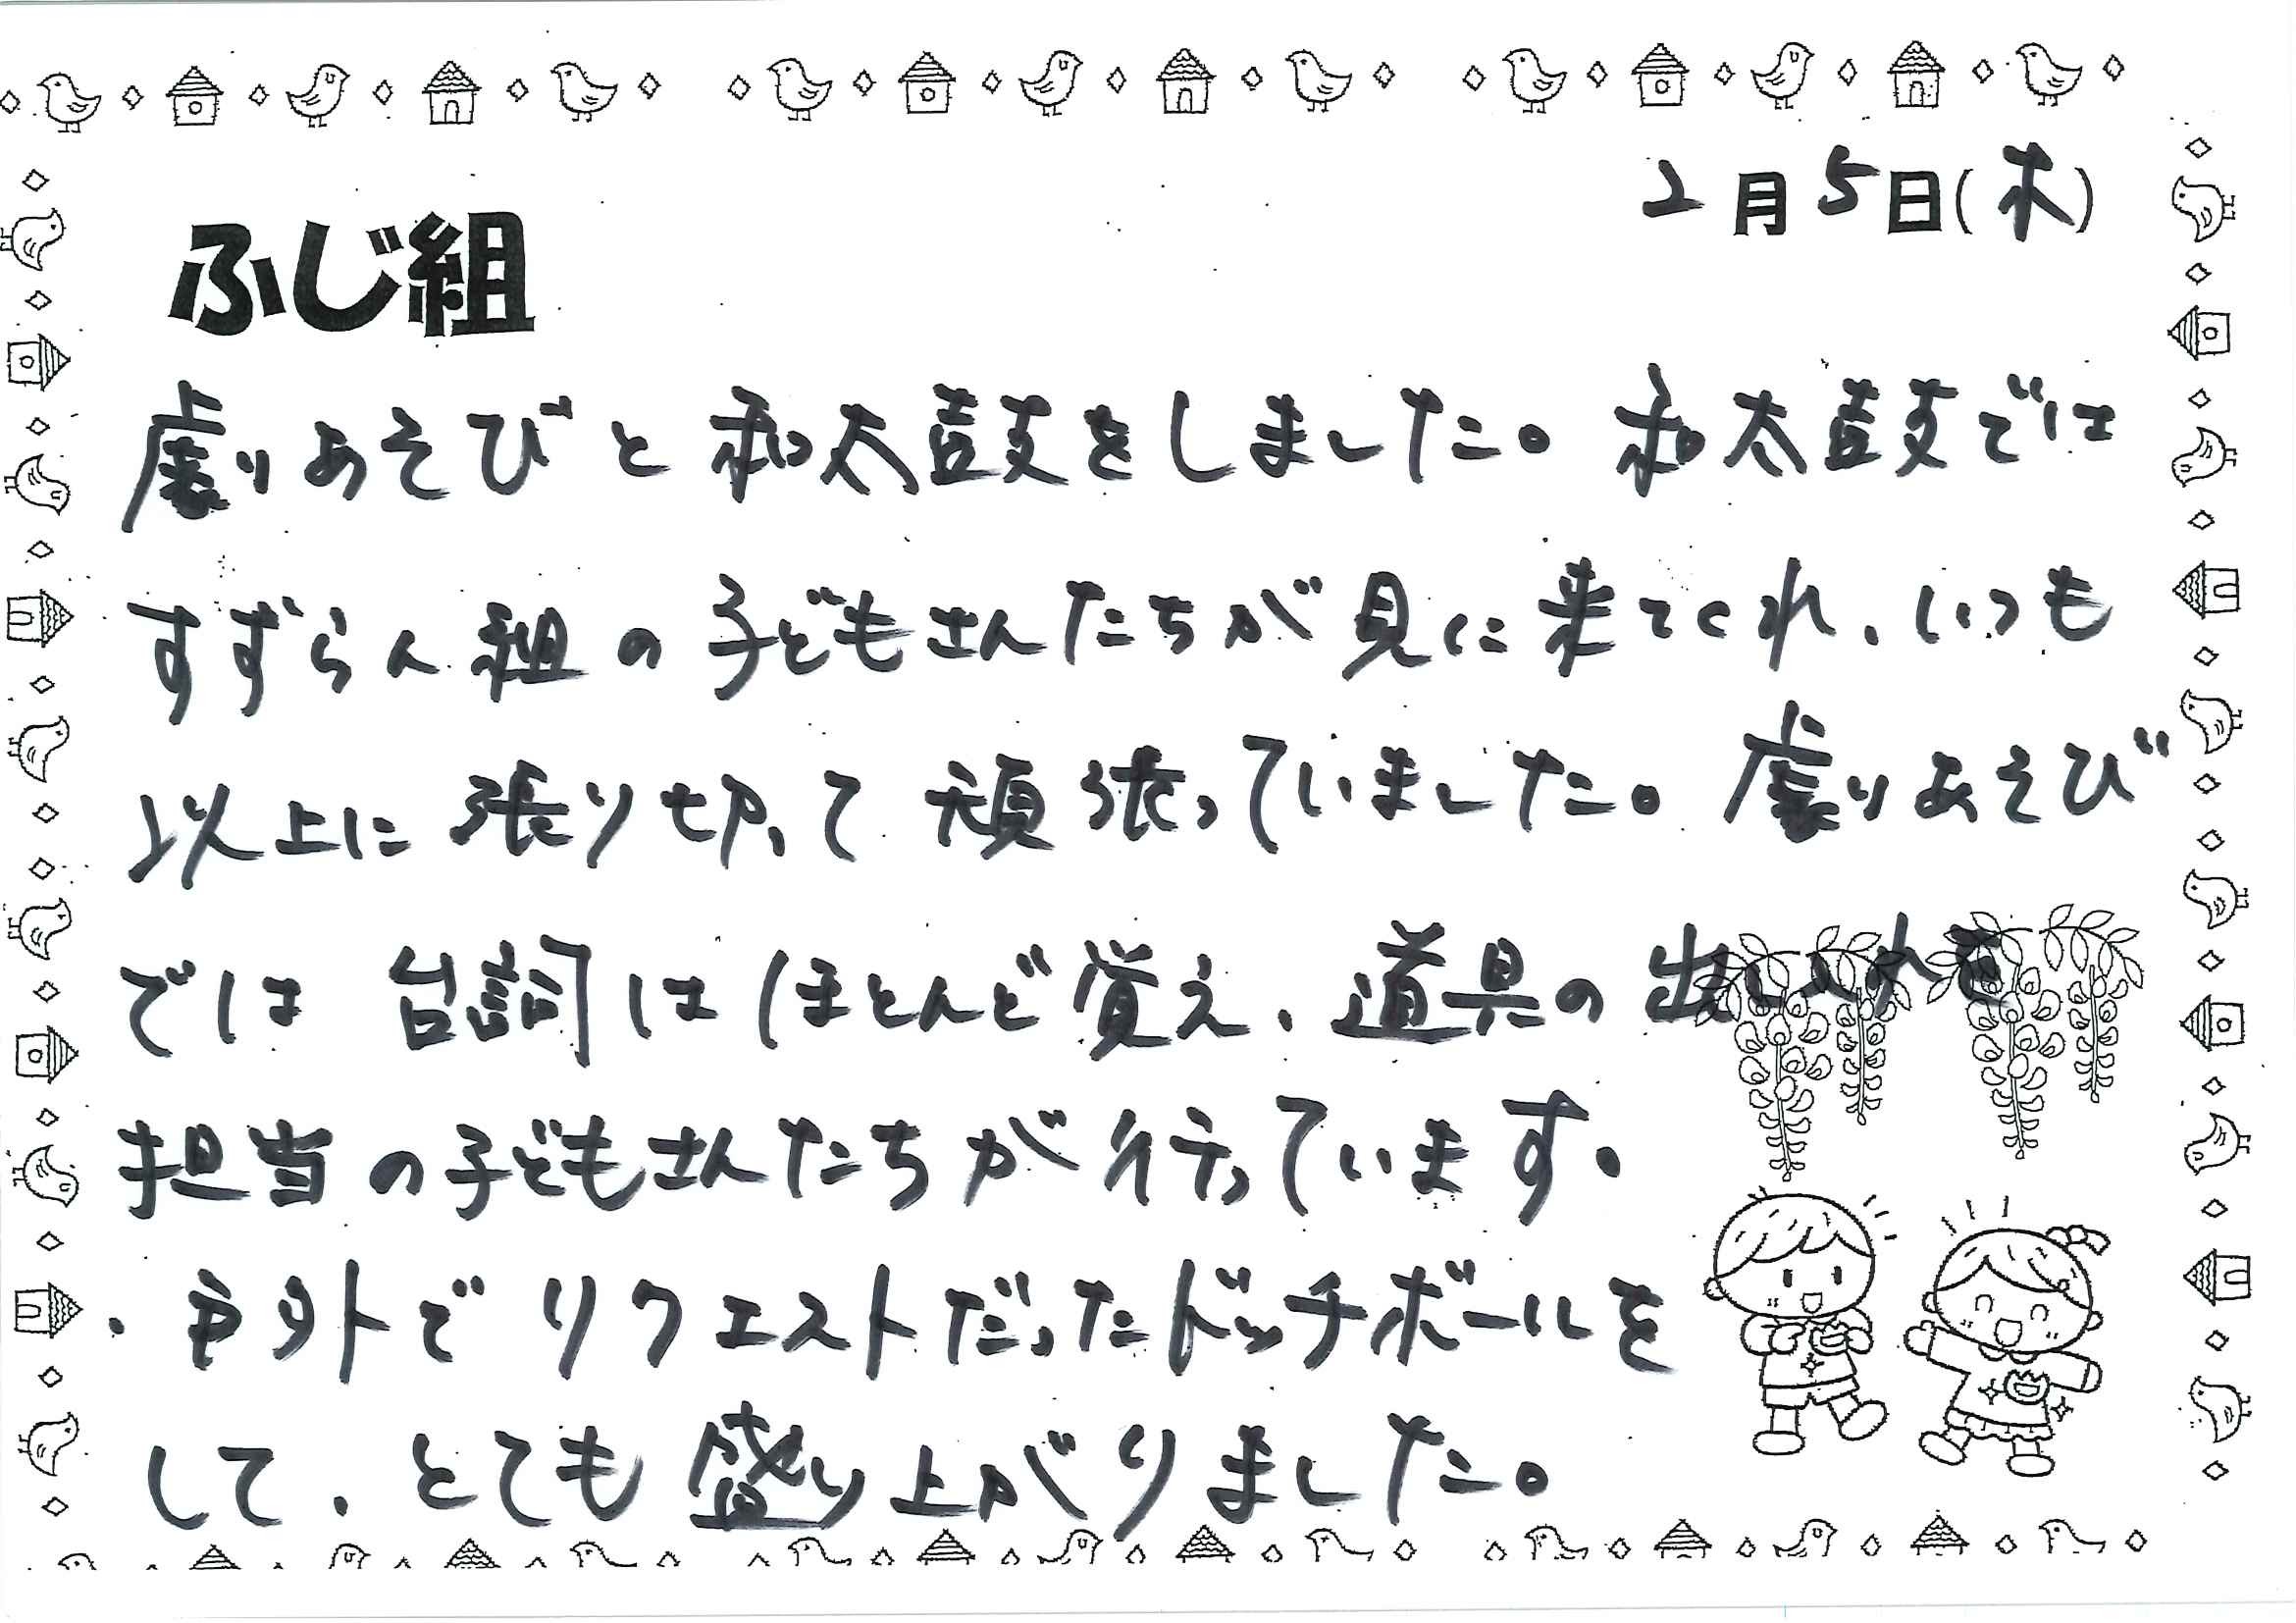 2月5日(木)
ふじ組
劇あそびと和太鼓をしました。和太鼓では
すずらん組の子どもさんたちが見に来てくれ、いつも
以上に張り切って頑張っていました。劇あそび
では台詞はほとんど覚え、道具の出し入れを
担当の子どもさんたちが行っています。
・戸外でリクエストだったドッチボールを
して、とても盛り上がりました。